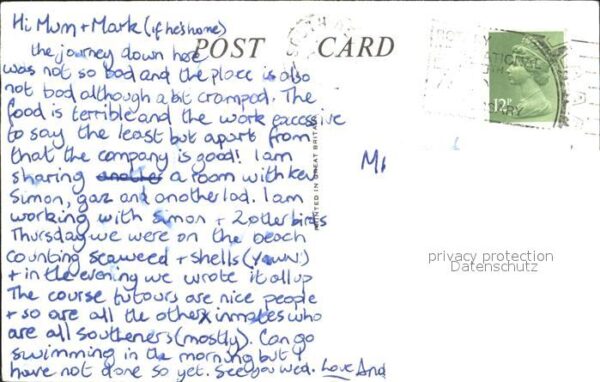 Hi Mum + Mark (if he's home)
the journey down here
POST CARD
was not so bad and the place is also
not bad although a bit cramped. The
food is terrible and the work excessive
to say the least but apart from
that the company is good! I am
sharing another a room with kev
Simon, gaz and another lad. I am
working with simon + 2 other birds
Thursday we were on the beach
counting seaweed + shells (yawn!)
+ in the evening we wrote it all up
The course tutours are nice people
+ so are all the other inmates who
are all southeners (mostly). Can go
swimming in the morning but I
have not done so yet. See you wed. Love And
PRINTED IN GREAT BRITAIN
12P
privacy protection
Datenschutz